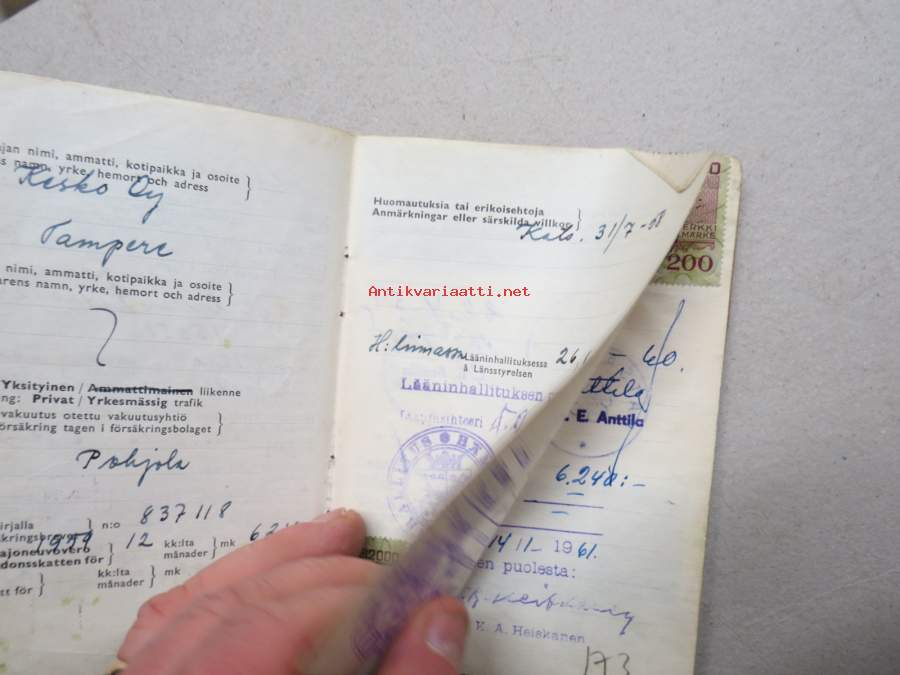 jan nimi, ammatti, kotipaikka ja osoite
s namn, yrke, hemort och adress
Kesko Oy
Tampere
nimi, ammatti, kotipaikka ja osoite
arens namn, yrke, hemort och adress
Yksityinen / Ammattimainen liikenne
ng: Privat / Yrkesmässig trafik
vakuutus otettu vakuutusyhtiö
örsäkring tagen i försäkringsbolaget
Pohjola
irjalla
kringsbrevet
n:o 837118
1959
ajoneuvovero
donsskatten för
12 kk:lta
månader
mk 624
kk:lta
månader
mk
tt för
Huomautuksia tai erikoisehtoja
Anmärkningar eller särskilda villkor
Kats. 31/7-58
ERKKI
MÄRKE
200
Antikvariaatti.net
H:linnassa Lääninhallituksessa
å Länsstyrelsen
26
60.
Lääninhallituksen
Lääninsihteeri
E. Anttila
6.240:-
2000
14/11- 1961.
en puolesta:
K. A. Heiskanen
173